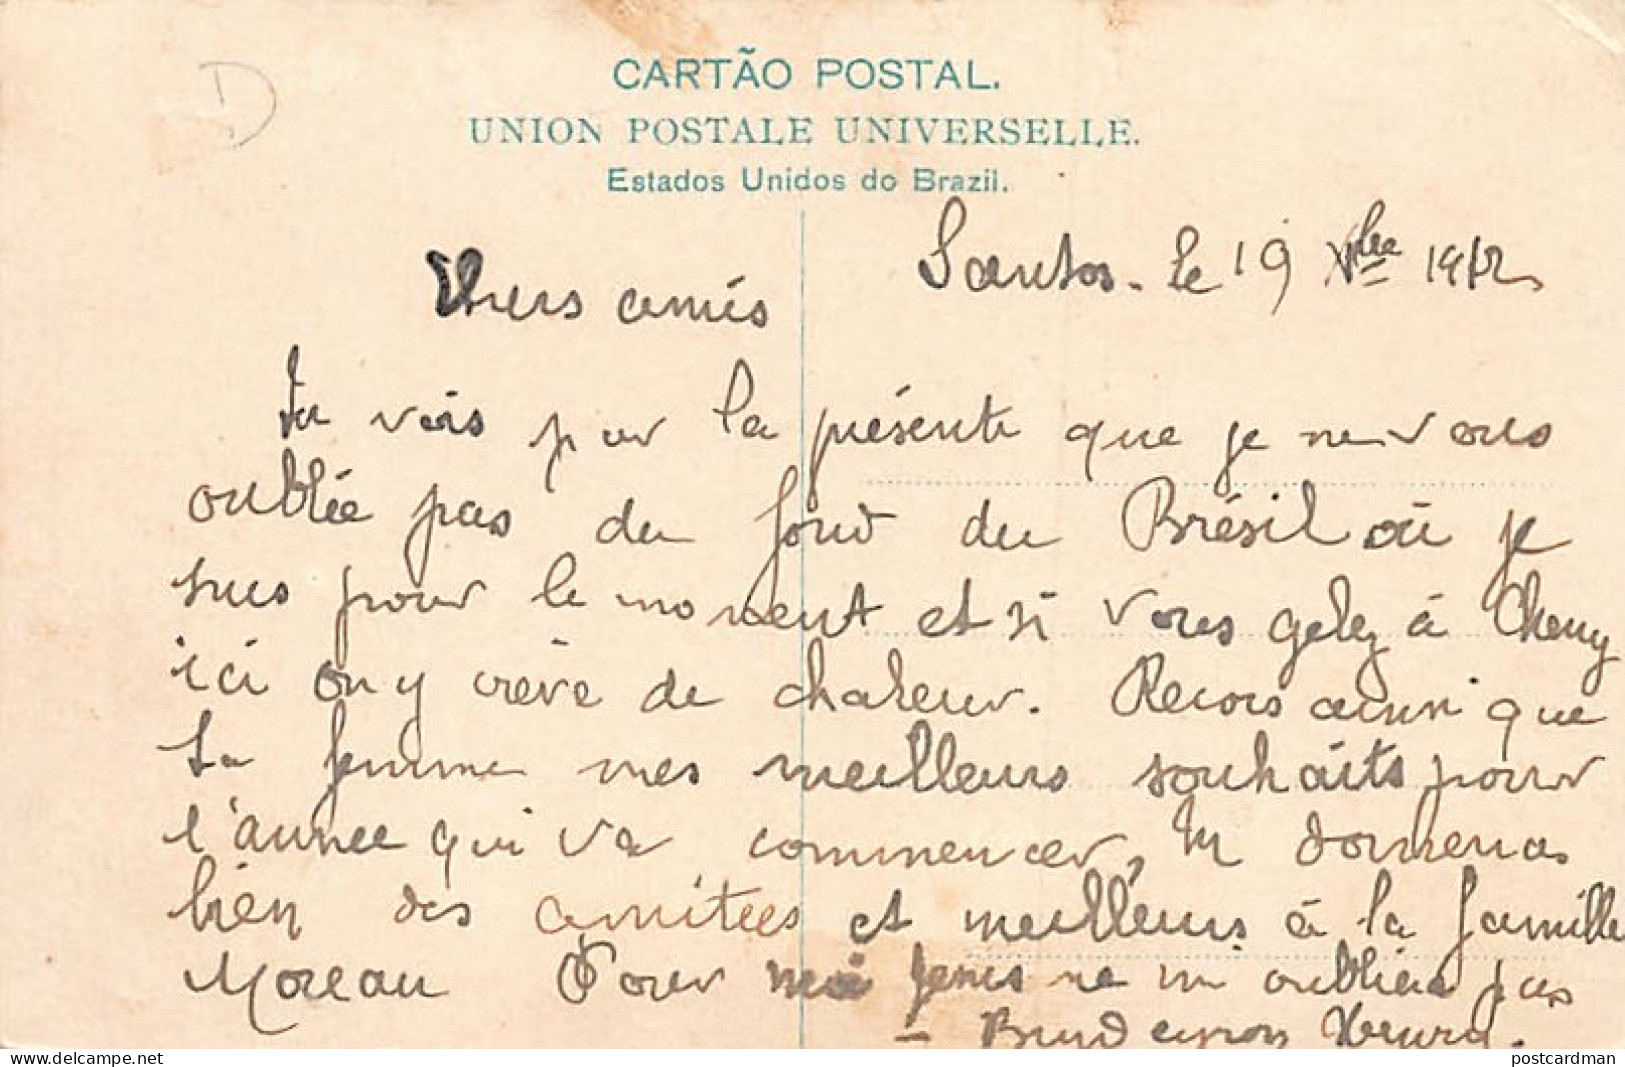 CARTÃO POSTAL.
UNION POSTALE UNIVERSELLE.
Estados Unidos do Brazil.
D
Santos. le 19 Xbre 1912
Chers amis
Tu vois par la présente que je ne vous
oublie pas du fond du Brésil où je
suis pour le moment et si vous gelez à Cheny
ici on y crève de chaleur. Recois ainsi que
ta femme mes meilleurs souhaits pour
l'année qui va commencer, tu donneras
bien des amitées et meilleurs à la famille
Moreau Pour moi je ne oubliera pas
postcardman